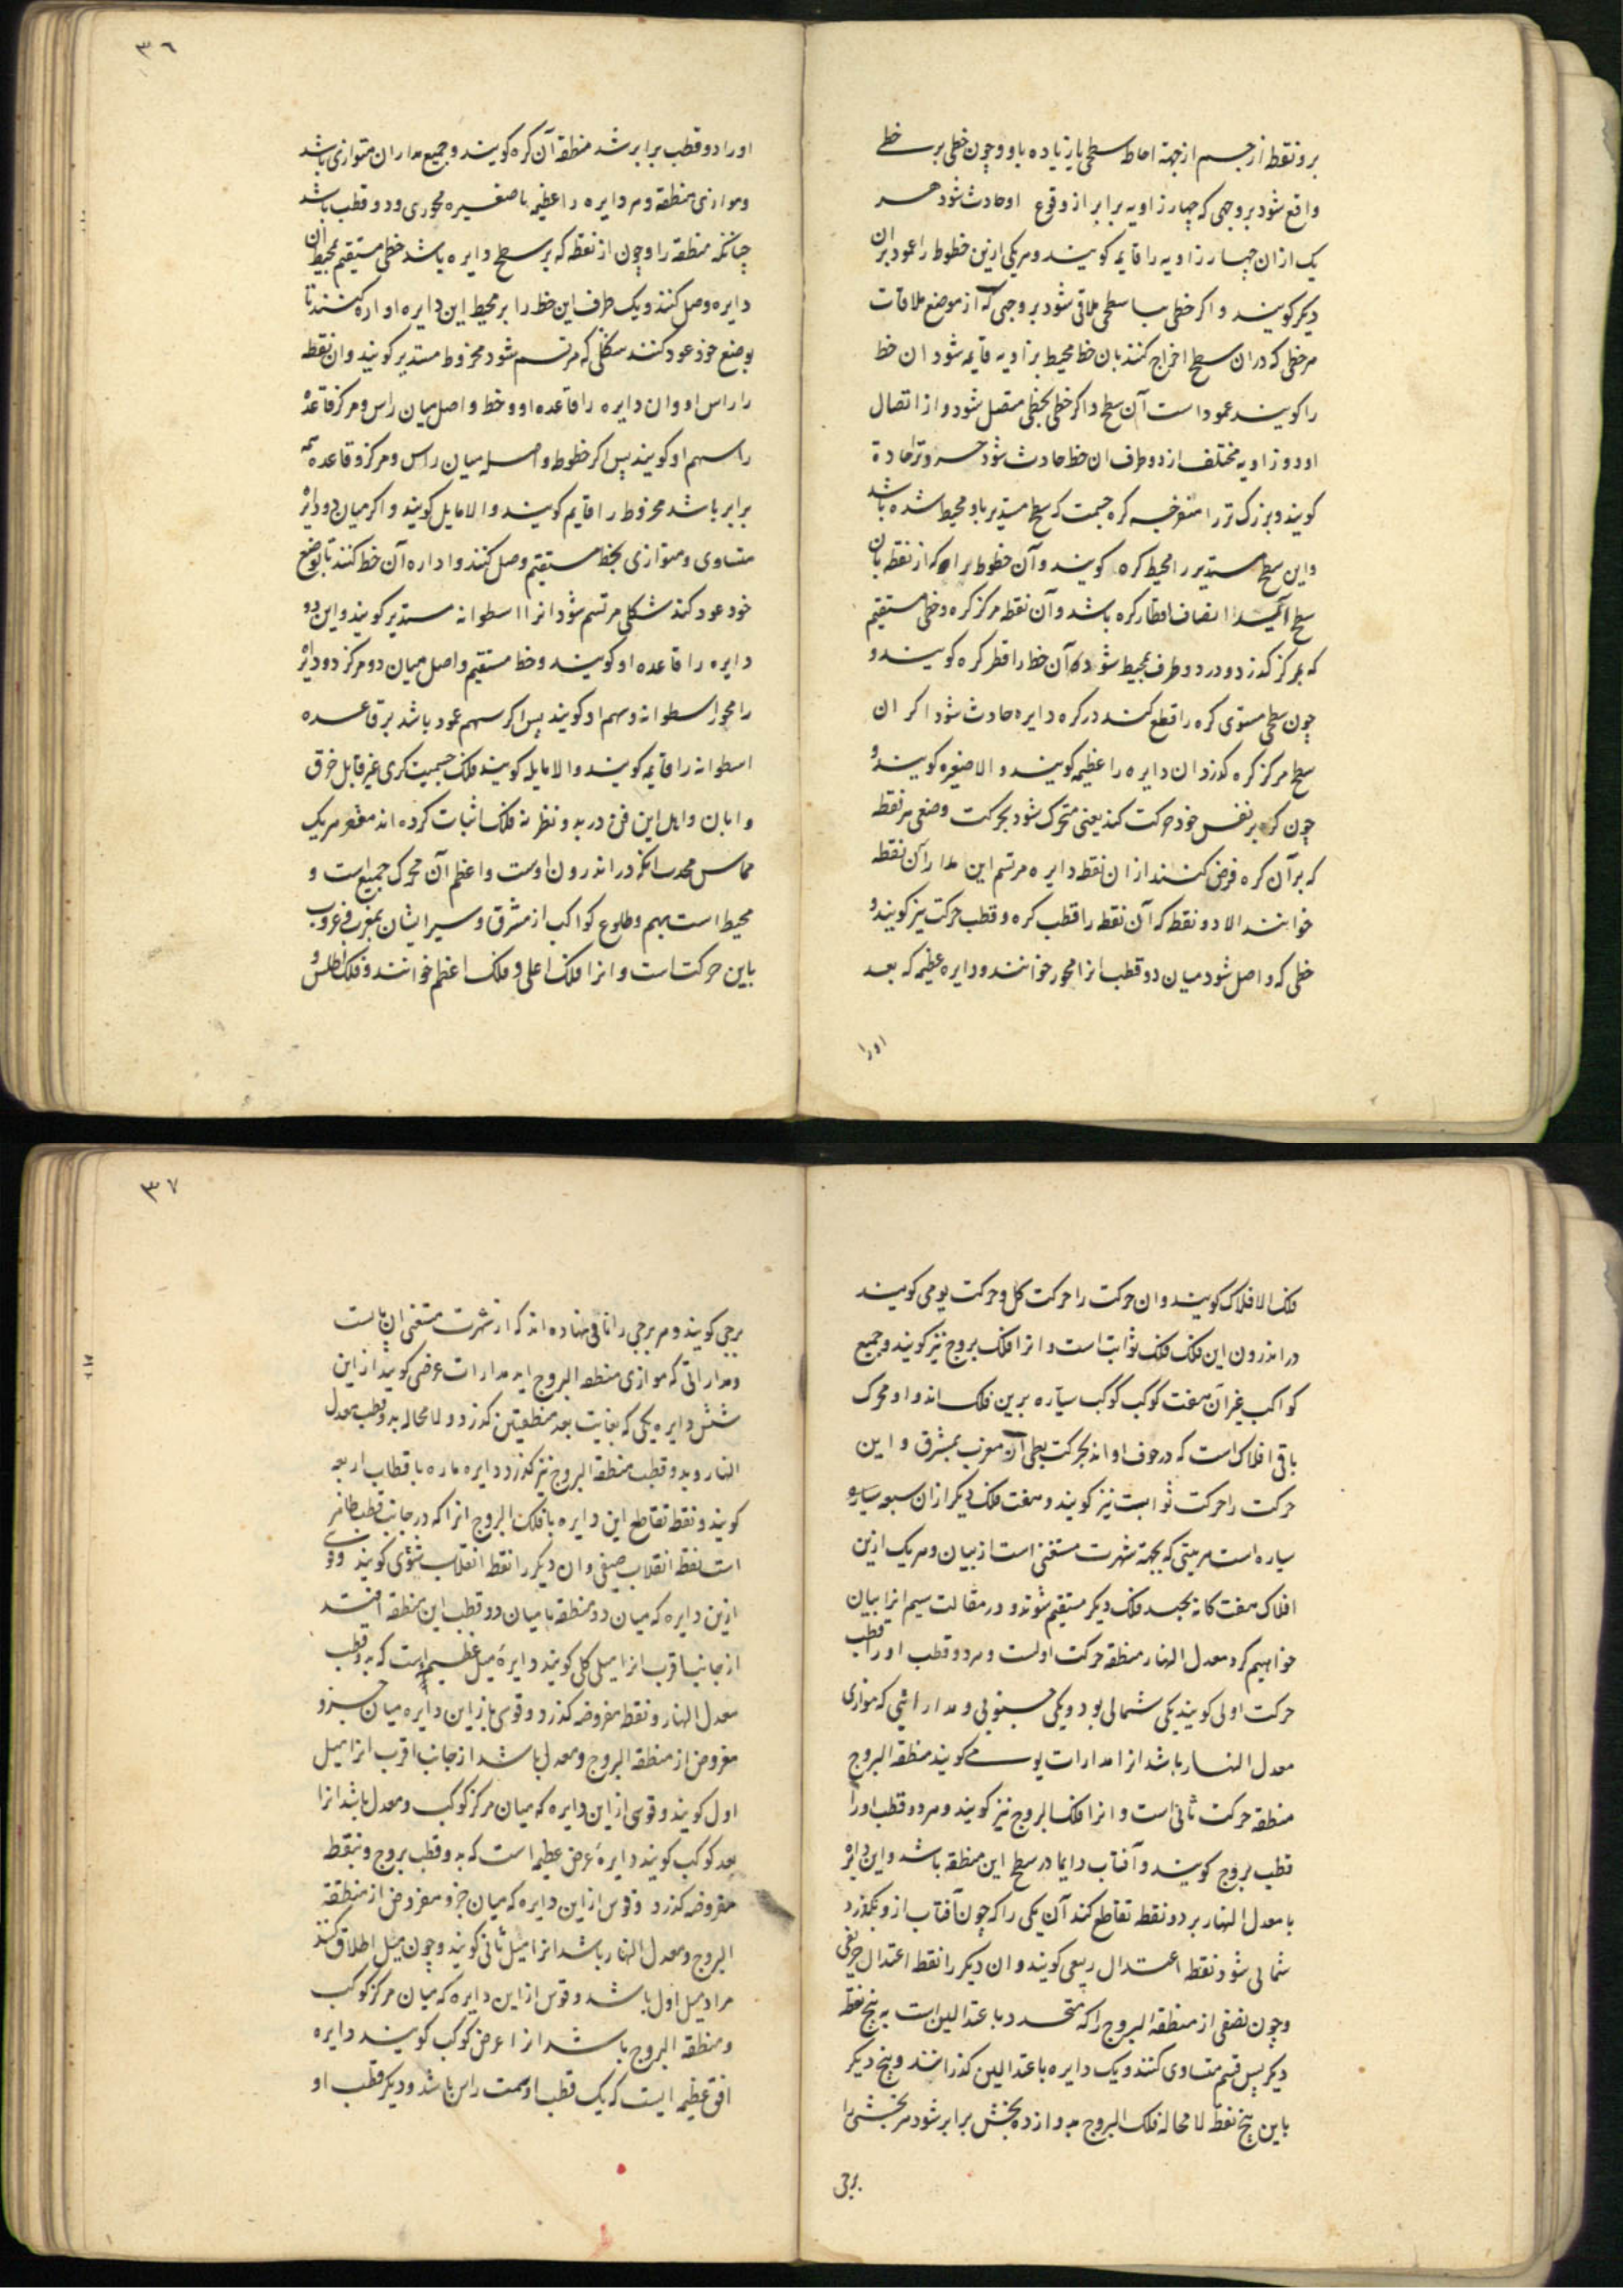 بر و نقطه از جسم از جهة احاطه سطحی یا زیاده باو و چون خطی بر خطی
واقع شود بر وجهی که چهار زاویه برابر از وقوع او حادث شود هر
یک از ان چهار زاویه را قایمه کویند و هر یکی ازین خطوط را عمود بران
دیکر کویند و اکر خطی با سطحی ملاقی شود بر وجهی که از موضع ملاقات
هر خطی که دران سطح اخراج کنند بان خط محیط بزاویه قایمه شود ان خط
را کویند عمود است آن سطح و اکر خطی بخطی متصل شود و از اتصال
او دو زاویه مختلف از دو طرف ان خط حادث شود خردتر را حادة
کویند و بزرک تر را منفرجه کره جسمیست که سطح مستدیر باو محیط شده باشد
و این سطح مستدیر را محیط کره کویند و آن خطوط برابر که از نقطه بان
سطح آیند انصاف اقطار کره باشد و آن نقطه مرکز کره و خطی مستقیم
که بمرکز کذرد و در دو طرف بمحیط شود آن خط را قطر کره کویند و
چون سطحی مستوی کره را قطع کند در کره دایره حادث شود اکر ان
سطح مرکز کره کذرد ان دایره را عظیمه کویند و الا صغیره کویند و
چون کره بر نفس خود حرکت کند یعنی متحرک شود بحرکت وضعی هر نقطه
که بر آن کره فرض کنند از ان نقطه دایره مرتسم این مدار آن نقطه
خوانند الا دو نقطه که آن نقطه را قطب کره و قطب حرکت نیز کویند و
خطی که واصل شود میان دو قطب انرا محور خوانند و دایره عظیمه که بعد
اورا
٣٦
اورا دو قطب برابر شد منطقه آن کره کویند و جمیع مداران متوازی باشد
و موازی منطقه و هر دایره را عظیمه یا صغیره محوری و دو قطب باشد
چنانکه منطقه را و چون از نقطه که بر سطح دایره باشد خطی مستقیم بمحیط ان
دایره وصل کنند و یک طرف این خط را بر محیط این دایره اداره کنند تا
بوضع خود عود کنند شکلی که مرتسم شود مخروط مستدیر کویند وان نقطه
را راس او وان دایره را قاعده او و خط واصل میان راس و مرکز قاعده
را سهم او کویند پس اکر خطوط واصله میان راس و مرکز و قاعده همه
برابر باشد مخروط را قایم کویند و الا مایل کویند و اکر میان دو دایره
متساوی و متوازی بخط مستقیم وصل کنند و اداره آن خط کنند تا بوضع
خود عود کند شکلی مرتسم شود انرا اسطوانه مستدیر کویند و این دو
دایره را قاعده او کویند و خط مستقیم واصل میان دو مرکز دو دایره
را محور اسطوانه و سهم او کویند پس اکر سهم عمود باشد بر قاعده
اسطوانه را قایمه کویند و الا مایله کویند فلک جسمیست کری غیر قابل خرق
و اهل این فن در بدو نظر نه فلک اثبات کرده اند مقعر هر یک
مماس محدب انکه در اندرون اوست و اعظم آن محرک جمیع است و
محیط است بهم و طلوع کواکب از مشرق و سیر ایشان بمغرب و غروب
باین حرکت است و انرا فلک اعلی و فلک اعظم خوانند و فلک اطلس و
فلک الافلاک کویند و ان حرکت را حرکت کل و حرکت یومی کویند
در اندرون این فلک فلک ثوابت است و انرا فلک بروج نیز کویند و جمیع
کواکب غیر آن هفت کوکب کوکب سیاره برین فلک اند و او محرک
باقی افلاک است که در جوف او اند بحرکت بطی آن مغرب بمشرق و این
حرکت را حرکت ثوابت نیز کویند و هفت فلک دیکر از ان سبعه سیاره
سیاره است مرتبتی که بجهة شهرت مستغنی است از بیان و هر یک ازین
افلاک هفت کانه بچند فلک دیکر منقسم شوند و در مقالت سیم انرا بیان
خواهیم کرد معدل النهار منطقه حرکت اولست و هر دو قطب اورا قطب
حرکت اولی کویند یکی شمالی بود و یکی جنوبی و مداراتی که موازی
معدل النهار باشد انرا مدارات یومی کویند منطقة البروج
منطقه حرکت ثانی است و انرا فلک البروج نیز کویند و هر دو قطب اورا
قطب بروج کویند و آفتاب دایما در سطح این منطقه باشد و این دایره
با معدل النهار بر دو نقطه تقاطع کند آن یکی را که چون آفتاب ازو بکذرد
شمالی شود نقطه اعتدال ربیعی کویند و ان دیکر را نقطه اعتدال خریفی
و چون نصفی از منطقة البروج را که متحدد باعتدالین است به پنج نقطه
دیکر پس قسم متساوی کنند و یک دایره باعتدالین کذرانند و پنج دیکر
باین پنج نقطه لا محاله فلک البروج بدوازده بخش برابر شود هر بخشی را
برجی
٣٧
برجی کویند و هر برجی را نامی نهاده اند که از شهرت مستغنی از بیانست
و مداراتی که موازی منطقة البروج اند مدارات عرضی کویند از این
شش دایره یکی که بغایت بعد منطقتین کذرد و لا محاله بدو قطب معدل
النهار و بدو قطب منطقة البروج نیز کذرد دایره ماره باقطاب اربعه
کویند و نقطه تقاطع این دایره با فلک البروج انرا که در جانب قطب ظاهر
است نقطه انقلاب صیفی و ان دیکر را نقطه انقلاب شتوی کویند و قوسی
ازین دایره که میان دو منطقه یا میان دو قطب این منطقه افتد
از جانب اقرب انرا میل کلی کویند دایرهٔ میل عظیمه است که بدو قطب
معدل النهار و نقطه مفروضه کذرد و قوسی از این دایره میان جزو
مفروض از منطقة البروج و معدل باشد از جانب اقرب انرا میل
اول کویند و قوسی از این دایره که میان مرکز کوکب و معدل باشد انرا
بعد کوکب کویند دایرهٔ عرض عظیمه است که بدو قطب بروج و بنقطه
مفروضه کذرد و قوس از این دایره که میان جزو مفروض از منطقة
البروج و معدل النهار باشد انرا میل ثانی کویند و چون میل اطلاق کنند
مراد میل اول باشد و قوس از این دایره که میان مرکز کوکب
و منطقة البروج باشد انرا عرض کوکب کویند دایره
افق عظیمه ایست که یک قطب او سمت راس باشد و دیکر قطب او